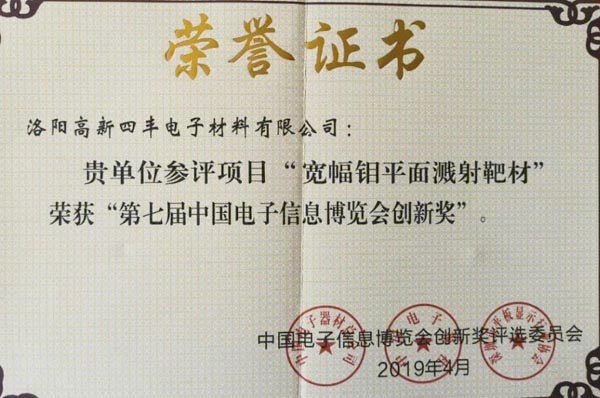 荣誉证书
洛阳高新四丰电子材料有限公司：
贵单位参评项目“宽幅钼平面溅射靶材”
荣获“第七届中国电子信息博览会创新奖”。
中国电子信息博览会创新奖评选委员会
2019年4月